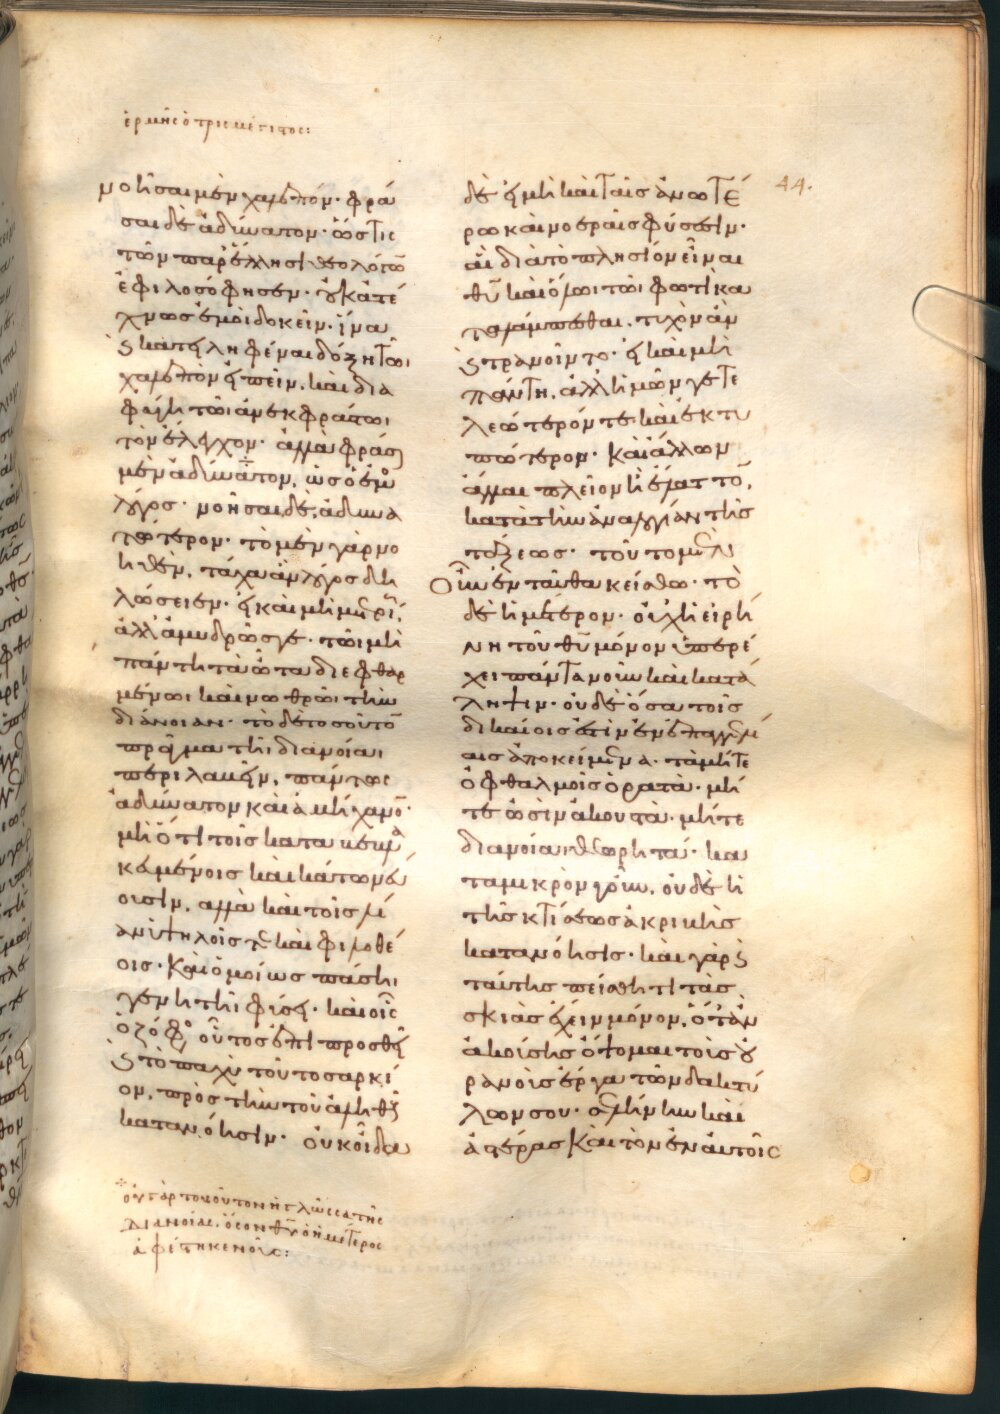 ἑρμῆς ὁ τρισμέγιστος:
νοῆσαι μὲν χαλεπόν· φρά
σαι δὲ ἀδύνατον· ὥς τις
τῶν παρ᾽ ἕλλησι θεολόγω̅
ἐφιλοσόφησεν· οὐκ ἀτέ
χνως ἐμοὶ δοκεῖν· ἵνα
ϗ κατειληφέναι δόξη τῶι
χαλεπὸν εἰπεῖν. καὶ δια
φύγη τῶι ἀνεκφράστωι
τὸν ἔλεγχον· ἀλλὰ φράσαι
μὲν ἀδύνατον, ὡς ὁ ἐμὸς
λόγος· νοῆσαι δὲ, ἀδυνα
τώτερον· τὸ μὲν γὰρ νο
ηθὲν, τάχα ἂν λόγος δη
λώσειεν· εἰ καὶ μὴ μετρίως,
ἀλλ᾽ ἀμυδρῶς γε· τῶι μὴ
πάντη τὰ ὦτα διεφθαρ
μένωι καὶ νωθρῶι τὴν
διάνοιαν· τὸ δὲ τοσοῦτο̅
πρᾶγμα τῆι διανοίαι
περιλαβεῖν, πάντως
ἀδύνατον καὶ ἀμήχανο̅·
μὴ ὅτι τοῖς καταβεβλα
κευμένοις καὶ κάτω νεύ
ουσιν, ἀλλὰ καὶ τοῖς λί
αν ὑψηλοῖς τε καὶ φιλοθέ
οις· Καὶ ὁμοίως πάσηι
γεννητῆι φύσει· καὶ οἷς
ὁ ζόφος οὗτος ἐπιπροσθεῖ
ϗ τὸ παχὺ τοῦτο σαρκί
ον, πρὸς τὴν τοῦ ἀληθοῦς
κατανόησιν· οὐκ οἶδα
δὲ εἰ μὴ καὶ ταῖς ἀνωτέ
ρω καὶ νοεραῖς φύσεσιν·
αἳ διὰ τὸ πλησίον εἶναι
θ̅υ̅ καὶ ὅλωι τῶι φωτὶ κα
ταλάμπεσθαι. τυχὸν ἂν
ϗ τρανοῖντο· εἰ καὶ μὴ
πάντη, ἀλλ᾽ ἡμῶν γε τε
λεώτερόν τε καὶ ἐκτυ
πώτερον· Καὶ ἄλλων
ἄλλαι πλεῖον ἢ ἔλαττο̅,
κατὰ τὴν ἀναλογίαν τῆς
τάξεως· τοῦτο μὲν
Οὖν ἐνταῦθα κείσθω· τὸ
δὲ ἡμέτερον· οὐχ ἡ εἰρή
νη τοῦ θ̅υ̅ μόνον ὑπερέ
χει πάντα νοῦν καὶ κατά
ληψιν· οὐδὲ ὅσα τοῖς
δικαίοις ἐστὶν ἐν ἐπαγγελί
αις ἀποκείμενα· τὰ μήτε
ὀφθαλμοῖς ὁρατὰ· μή
τε ὠσὶν ἀκουστὰ· μήτε
διανοία θεωρητά· κα
τὰ μικρὸν γοῦν, οὐδὲ ἡ
τῆς κτίσεως ἀκριβὴς
κατανόησις· καὶ γὰρ ϗ
ταύτης πείσθητι τὰς
σκιὰς ἔχειν μόνον, ὅταν
ἀκούσης ὄψομαι τοὺς οὐ
ρανοὺς ἔργα τῶν δακτύ
λων σου· σελήνην καὶ
ἀστέρας Καὶ τὸν ἐν αὐτοῖς
44.
οὐ γὰρ τοσοῦτον ἡ γλῶσσα τῆς
διανοίας, ὅσον θ̅υ̅ ὁ ἡμέτερος
ἀφέστηκε νοῦς: